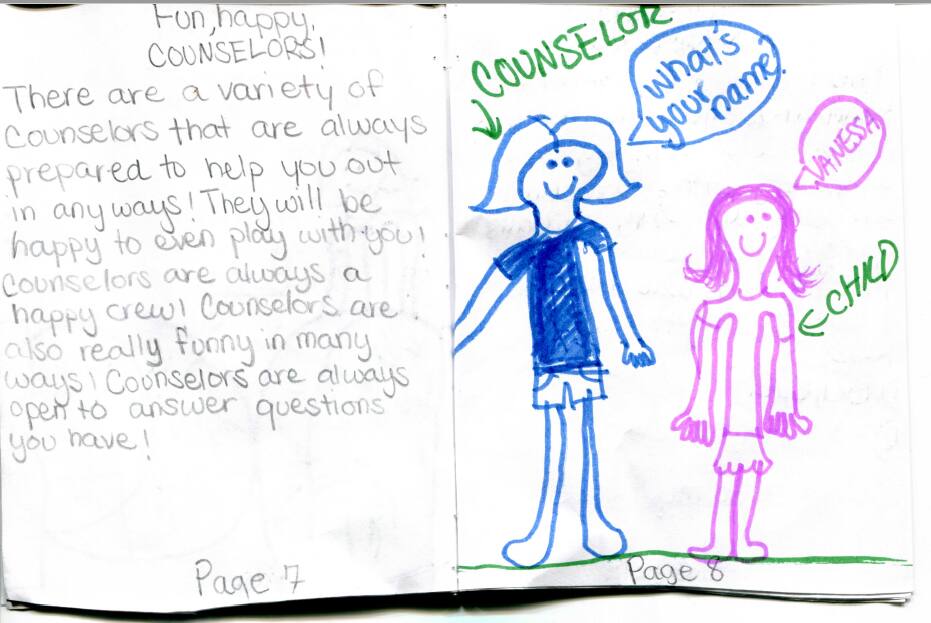 Fun, happy,
COUNSELORS!
There are a variety of
Counselors that are always
prepared to help you out
in any ways! They will be
happy to even play with you!
Counselors are always a
happy crew! Counselors are
also really funny in many
ways! Counselors are always
open to answer questions
you have!
Page 7
COUNSELOR
What's
your
name?
VANESSA
CHILD
Page 8